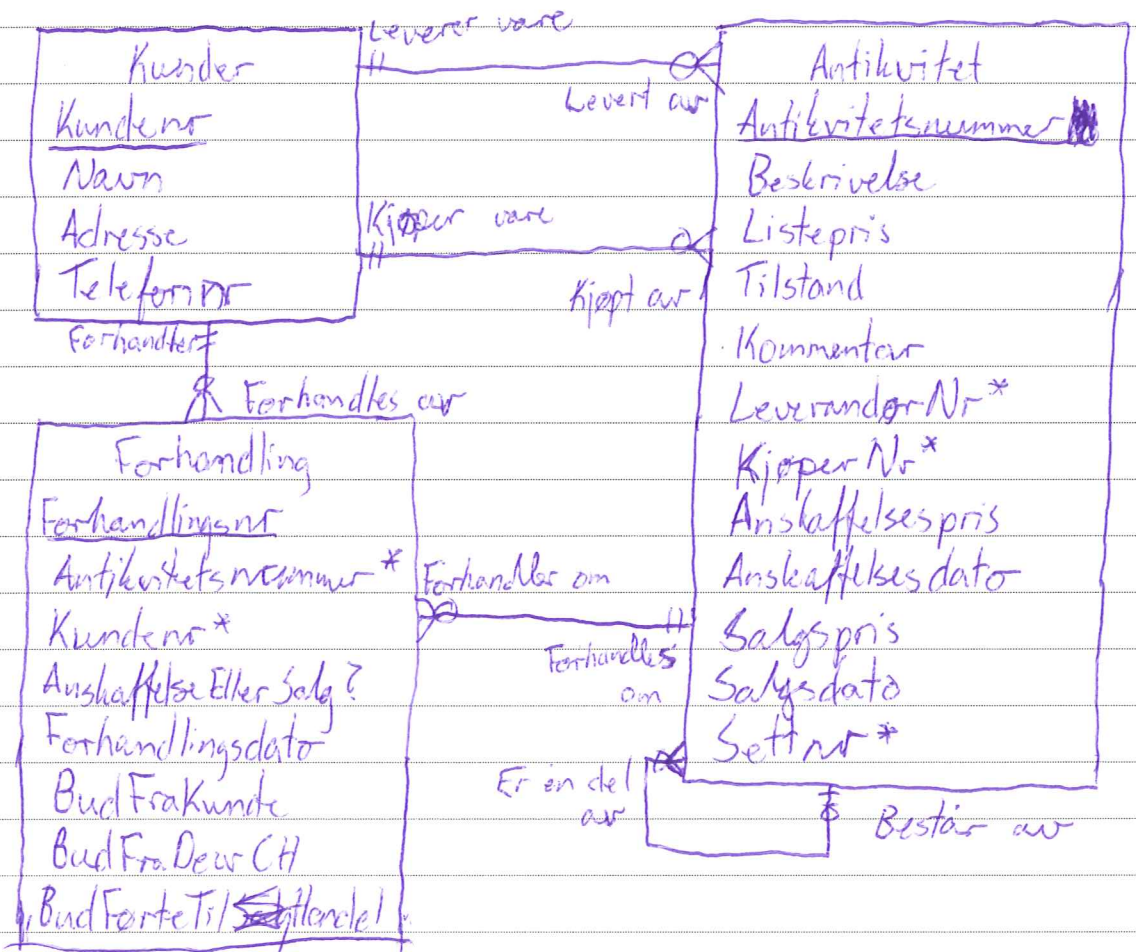 Leverer vare
Kunder
Kundenr
Navn
Adresse
Telefonnr
Levert av
Kjøper vare
Kjøpt av
Antikvitet
Antikvitetsnummer
Beskrivelse
Listepris
Tilstand
Kommentar
LeverandørNr*
KjøperNr*
Anskaffelsespris
Anskaffelsesdato
Salgspris
Salgsdato
Settnr*
Forhandler
Forhandles av
Forhandling
Forhandlingsnr
Antikvitetsnummer*
Kundenr*
AnskaffelseEllerSalg?
Forhandlingsdato
BudFraKunde
BudFraDewCH
BudFørteTilHandel
Forhandler om
Forhandles
om
Er en del
av
Består av